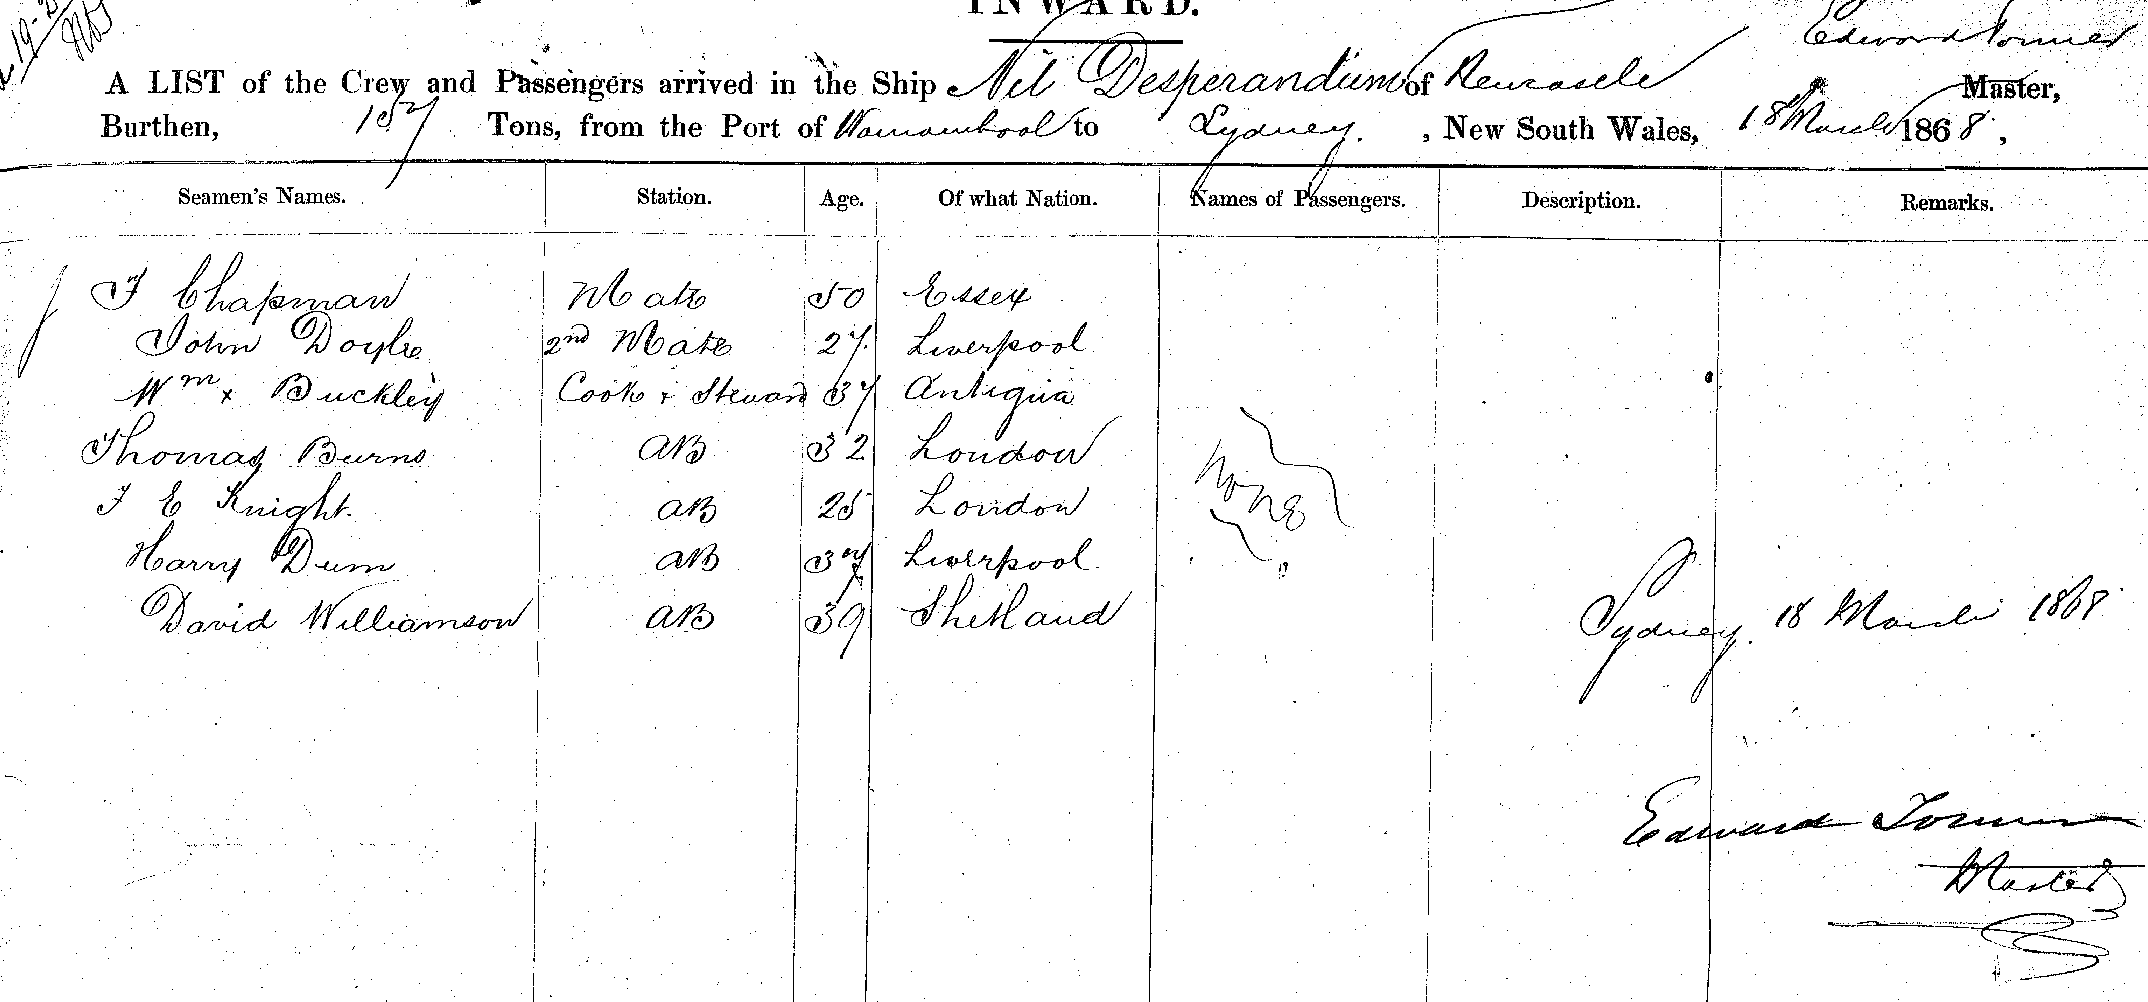 INWARD.
A LIST of the Crew and Passengers arrived in the Ship Nil Desperandum of Newcastle Edward Master,
Burthen, 157 Tons, from the Port of Warnambool to Sydney. , New South Wales, 18 March 1868,
Seamen's Names. Station. Age. Of what Nation. Names of Passengers. Description. Remarks.
F Chapman Mate 50 Essex
John Doyle 2nd Mate 27 Liverpool
Wm x Buckley Cook + Steward 37 Antigua
Thomas Burns AB 32 London
None
F E Knight AB 25 London
Harry Dum AB 37 Liverpool
David Williamson AB 39 Shetland
Sydney. 18 March 1868
Edward
Master